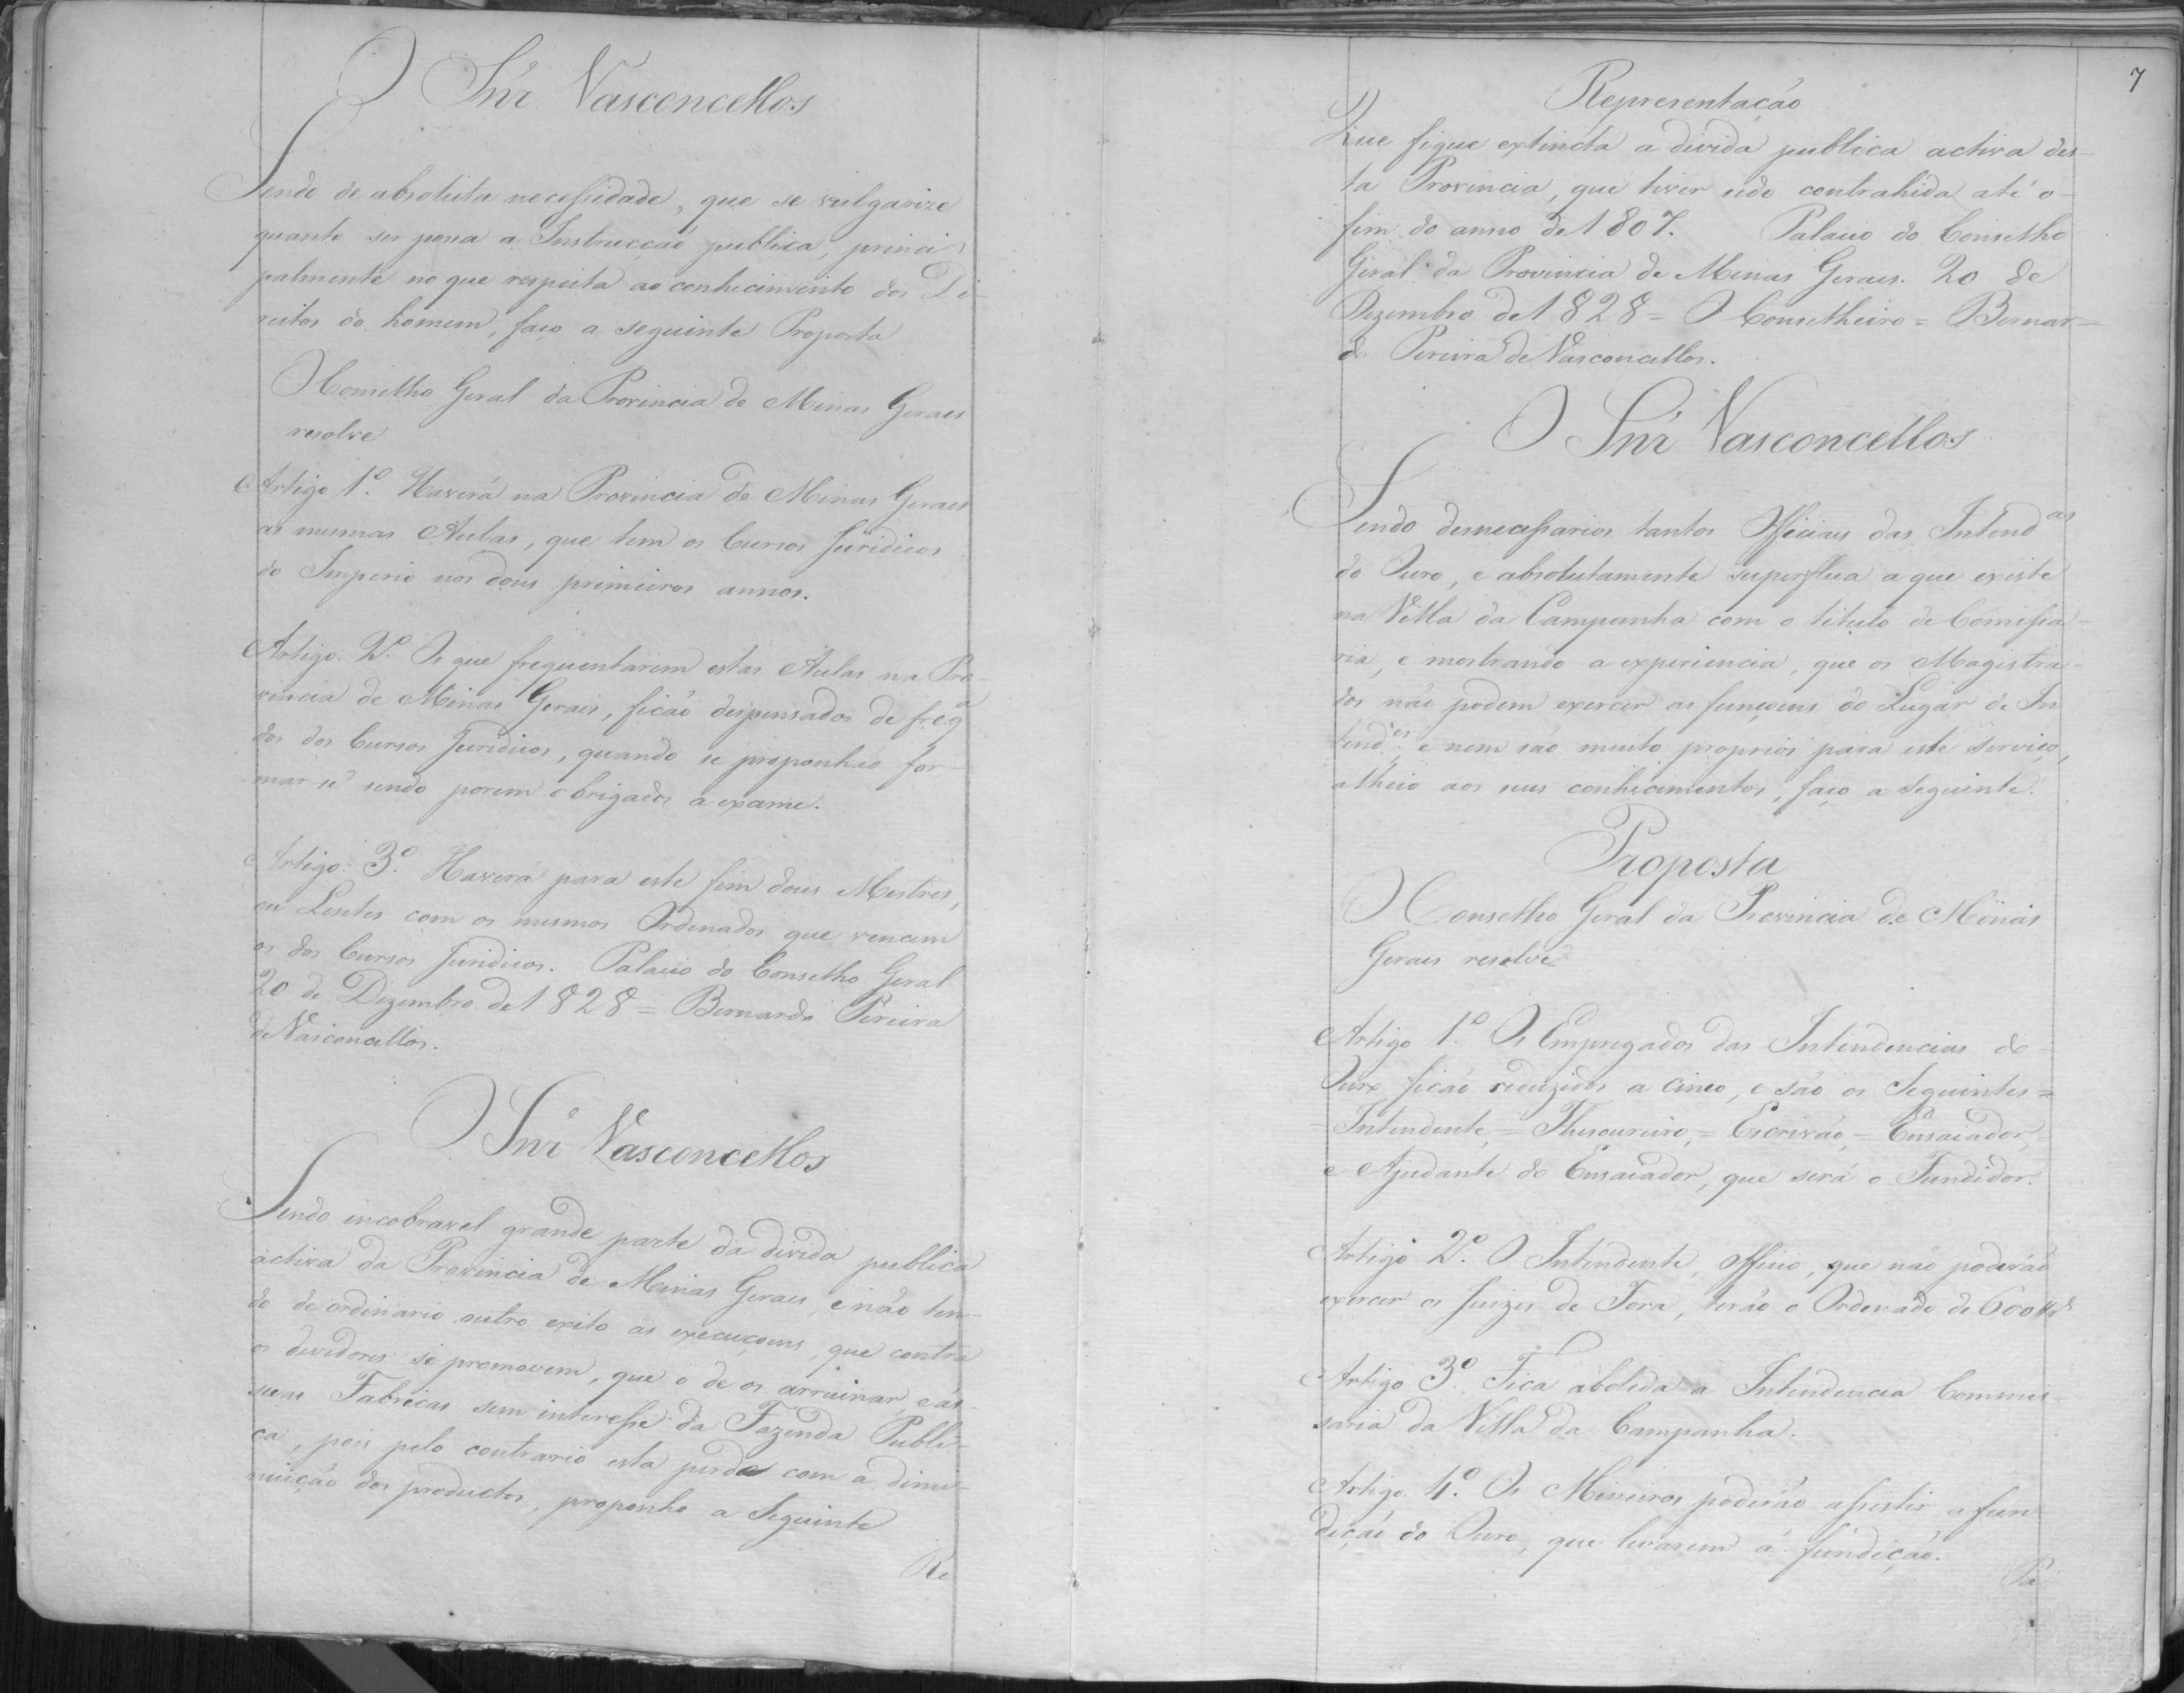 O Snr. Vasconcellos
Sendo de absoluta necessidade, que se vulgarize
quanto ser possa a Instrucção publica, princi
palmente no que respeita ao conhecimento dos Di-
reitos do homem, faço a seguinte Proposta
O Conselho Geral da Provincia de Minas Geraes
resolve
Artigo 1º. Haverá na Provincia de Minas Geraes
as mesmas Aulas, que tem os Cursos Juridicos
do Imperio nos dous primeiros annos.
Artigo. 2º. Os que frequentarem estas Aulas na Pro-
vincia de Minas Gerais, ficão despensados de freqª
dos dos Cursos Juridicos, quando se proponhão for-
mar-se sendo porem obrigados a exame.
Artigo. 3º. Haverá para este fim dous Mestres,
ou Lentes com os mesmos Ordenados que vencem
os dos Cursos Juridicos. Palacio do Conselho Geral
20 de Dezembro de 1828 = Bernardo Pereira
de Vasconcellos.
O Snr. Vasconcellos
Sendo incobravel grande parte da divida publica
activa da Provincia de Minas Geraes, e não ten-
do de ordinario outro exito as execuçoens, que contra
os devedores se promovem, que o de os arruinar, e ás
suas Fabricas sem interesse da Fazenda Publi-
ca, pois pelo contrario esta perde com a dimi-
nuição dos productos, proponho a Seguinte
Re
7
Representação
Que fique extincta a divida publica activa des-
ta Provincia, que tiver sido contrahida até o
fim do anno de 1807. Palacio do Conselho
Geral da Provincia de Minas Geraes. 20 de
Dezembro de 1828 = O Conselheiro = Bernar-
do Pereira de Vasconcellos.
O Snr Vasconcellos
Sendo desnecessarios tantos Officiaes das Intendas
do Ouro, e absolutamente superflua a que existe
na Villa da Campanha com o titulo de Comissa-
ria, e mostrando a experiencia, que os Magistra-
dos não podem exercer as funçoens do Lugar de In
tendes, e nem são muito proprios para este serviço,
alheio aos seus conhecimentos, faço a seguinte.
Proposta
O Conselho Geral da Provincia de Minas
Geraes resolve
Artigo 1º. Os Empregados das Intendencias do
Ouro ficão reduzidos a cinco, e são os Seguintes =
= Intendente, = Thesoureiro, = Escrivão, = Ensaiador,
e Ajudante do Ensaiador, que será o Fundidor.
Artigo 2º. O Intendente, Officio, que não poderáõ
exercer os Juizes de Fora, terão o Ordenado de 600$rs
Artigo 3º. Fica abolida a Intendencia Commis-
saria da Villa da Campanha.
Artigo. 4º. Os Mineiros poderão assistir a fun
dição do Ouro, que levarem á fundição.
Pa